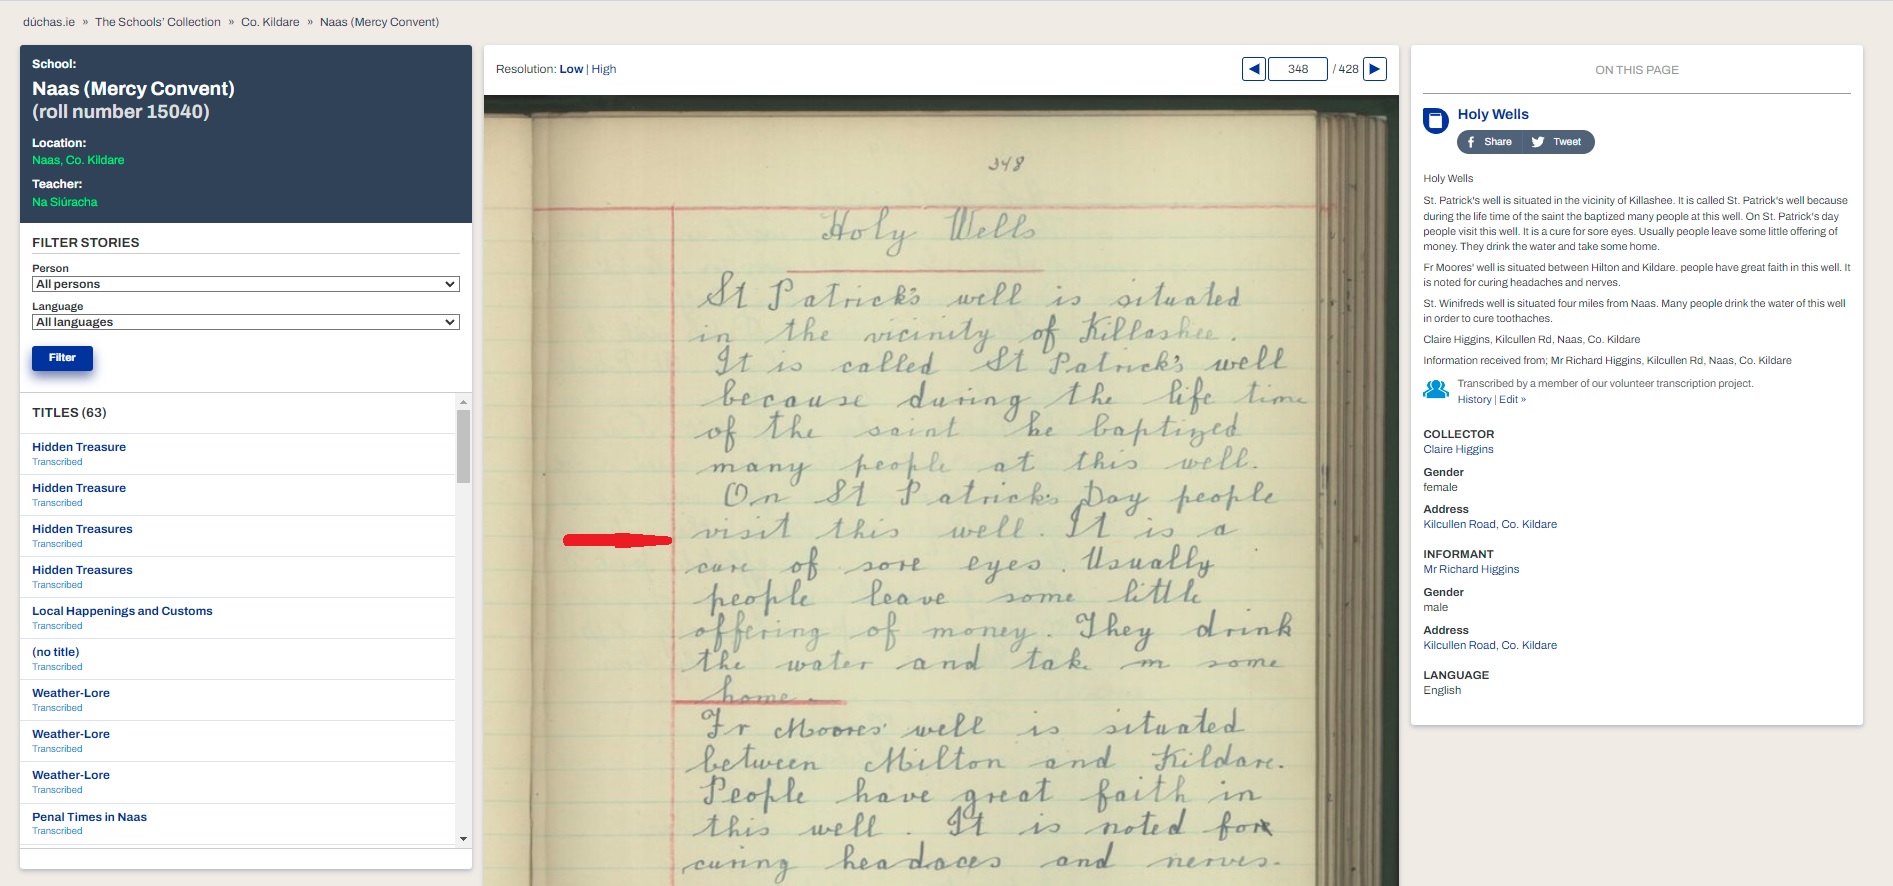 dúchas.ie » The Schools' Collection » Co. Kildare » Naas (Mercy Convent)
School:
Naas (Mercy Convent)
(roll number 15040)
Location:
Naas, Co. Kildare
Teacher:
Na Siúracha
FILTER STORIES
Person
All persons
Language
All languages
Filter
TITLES (63)
Hidden Treasure
Transcribed
Hidden Treasure
Transcribed
Hidden Treasures
Transcribed
Hidden Treasures
Transcribed
Local Happenings and Customs
Transcribed
(no title)
Transcribed
Weather-Lore
Transcribed
Weather-Lore
Transcribed
Weather-Lore
Transcribed
Penal Times in Naas
Transcribed
Resolution: Low | High
348 / 428
348
Holy Wells
St Patrick's well is situated
in the vicinity of Killashee.
It is called St Patrick's well
because during the life time
of the saint he baptized
many people at this well.
On St Patrick's Day people
visit this well. It is a
cure of sore eyes. Usually
people leave some little
offering of money. They drink
the water and take m some
home.
Fr Moores' well is situated
between Milton and Kildare.
People have great faith in
this well. It is noted for
curing headaces and nerves.
ON THIS PAGE
Holy Wells
Share Tweet
Holy Wells
St. Patrick's well is situated in the vicinity of Killashee. It is called St. Patrick's well because
during the life time of the saint the baptized many people at this well. On St. Patrick's day
people visit this well. It is a cure for sore eyes. Usually people leave some little offering of
money. They drink the water and take some home.
Fr Moores' well is situated between Hilton and Kildare. people have great faith in this well. It
is noted for curing headaches and nerves.
St. Winifreds well is situated four miles from Naas. Many people drink the water of this well
in order to cure toothaches.
Claire Higgins, Kilcullen Rd, Naas, Co. Kildare
Information received from; Mr Richard Higgins, Kilcullen Rd, Naas, Co. Kildare
Transcribed by a member of our volunteer transcription project.
History | Edit »
COLLECTOR
Claire Higgins
Gender
female
Address
Kilcullen Road, Co. Kildare
INFORMANT
Mr Richard Higgins
Gender
male
Address
Kilcullen Road, Co. Kildare
LANGUAGE
English